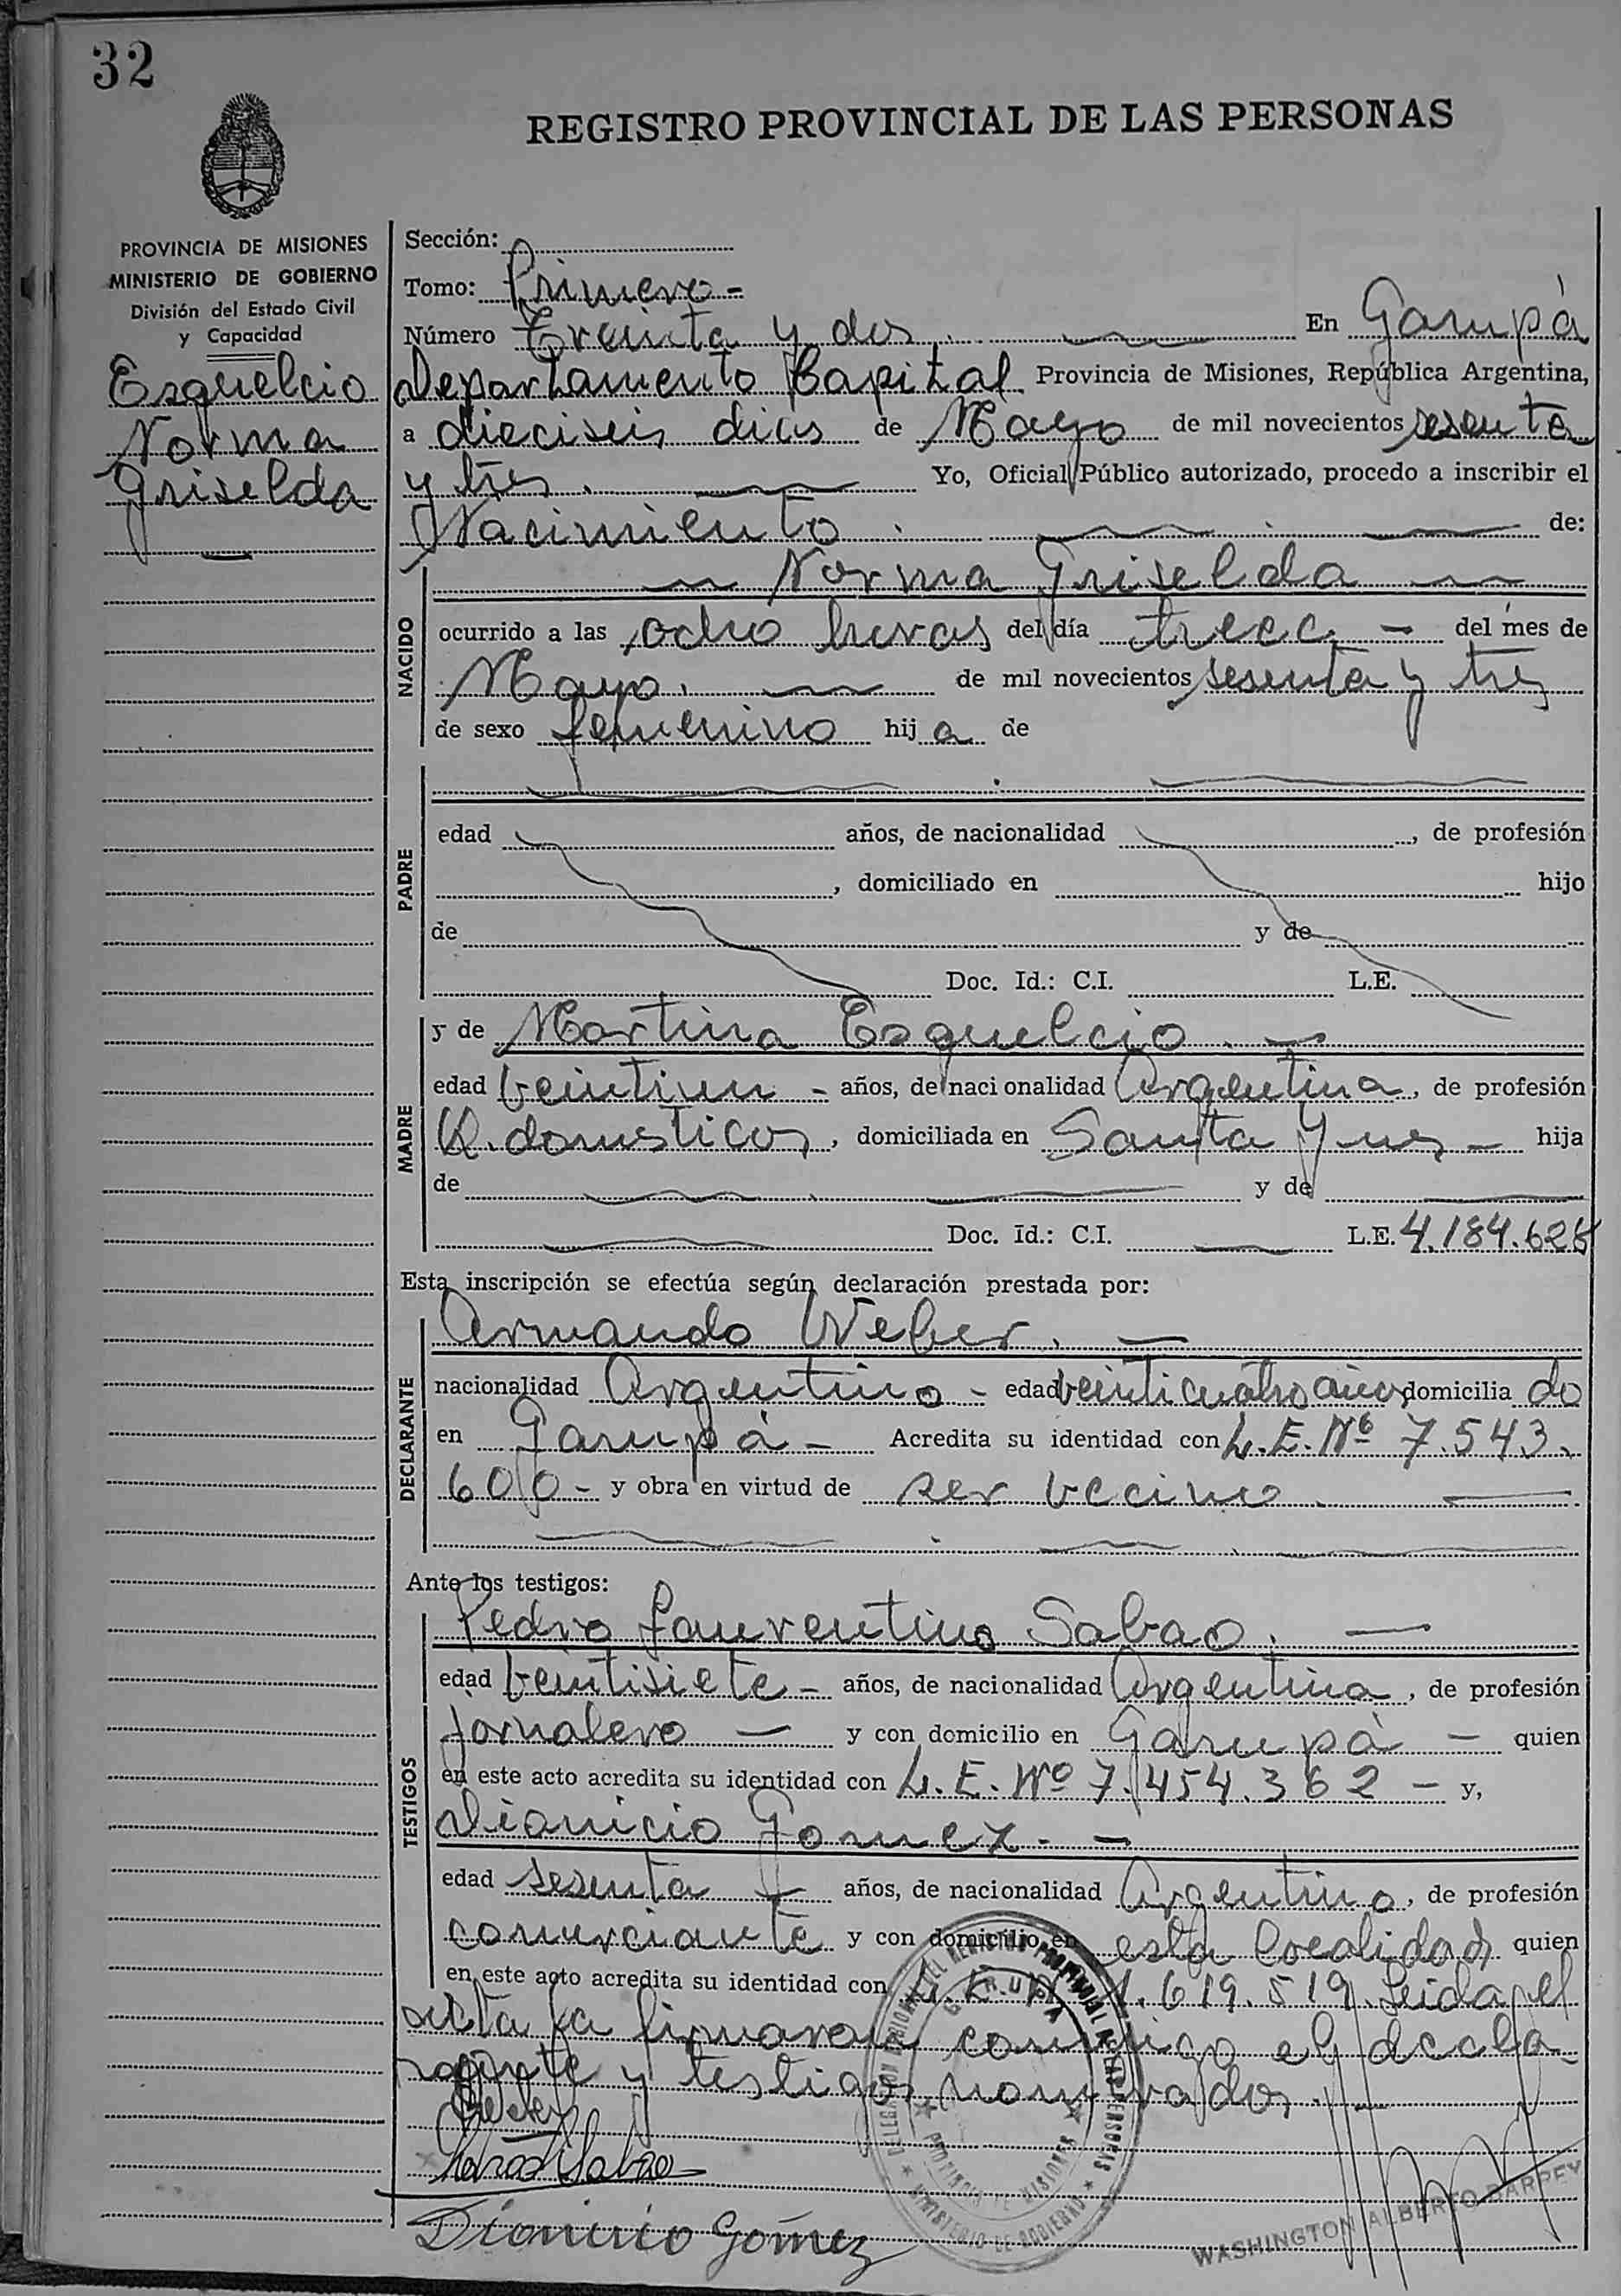 32
REGISTRO PROVINCIAL DE LAS PERSONAS
PROVINCIA DE MISIONES
MINISTERIO DE GOBIERNO
División del Estado Civil
y Capacidad
Esquelcio
Norma
Griselda
Sección:
Tomo: Primero -
Número Treinta y dos. En Garupá
Departamento Capital Provincia de Misiones, República Argentina,
a dieciseis dias de Mayo de mil novecientos sesenta
y tres. Yo, Oficial Público autorizado, procedo a inscribir el
Nacimiento. de:
NACIDO
Norma Griselda
ocurrido a las ocho horas del día trece - del mes de
Mayo. de mil novecientos sesenta y tres
de sexo femenino hij a de
PADRE
edad años, de nacionalidad , de profesión
, domiciliado en hijo
de y de
Doc. Id.: C.I. L.E.
MADRE
y de Martina Esquelcio. -
edad veintiun - años, de nacionalidad Argentina, de profesión
Q. domesticos, domiciliada en Santa Ynes - hija
de y de
Doc. Id.: C.I. L.E. 4.184.628
Esta inscripción se efectúa según declaración prestada por:
DECLARANTE
Armando Weber. -
nacionalidad Argentino - edad veinticuatro años domicilia do
en Garupá - Acredita su identidad con L.E. Nº 7.543.
600 - y obra en virtud de ser vecino.
Ante los testigos:
TESTIGOS
Pedro Laurentino Sabao. -
edad veintisiete - años, de nacionalidad Argentina, de profesión
jornalero - y con domicilio en Garupá - quien
en este acto acredita su identidad con L.E. Nº 7.454.362 - y,
Dionicio Gomez. -
edad sesenta - años, de nacionalidad Argentino, de profesión
comerciante y con domicilio en esta localidad quien
en este acto acredita su identidad con L.E. Nº 1.619.519. Leida el
acta la firmaron conmigo el decla-
rante y testigos nombrados. -
Sabao
Dionicio Gómez
DELEGACION REGIONAL DEL REGISTRO PROVINCIAL DE LAS PERSONAS
GARUPA
PROVINCIA DE MISIONES
MINISTERIO DE GOBIERNO
WASHINGTON ALBERTO BARREY